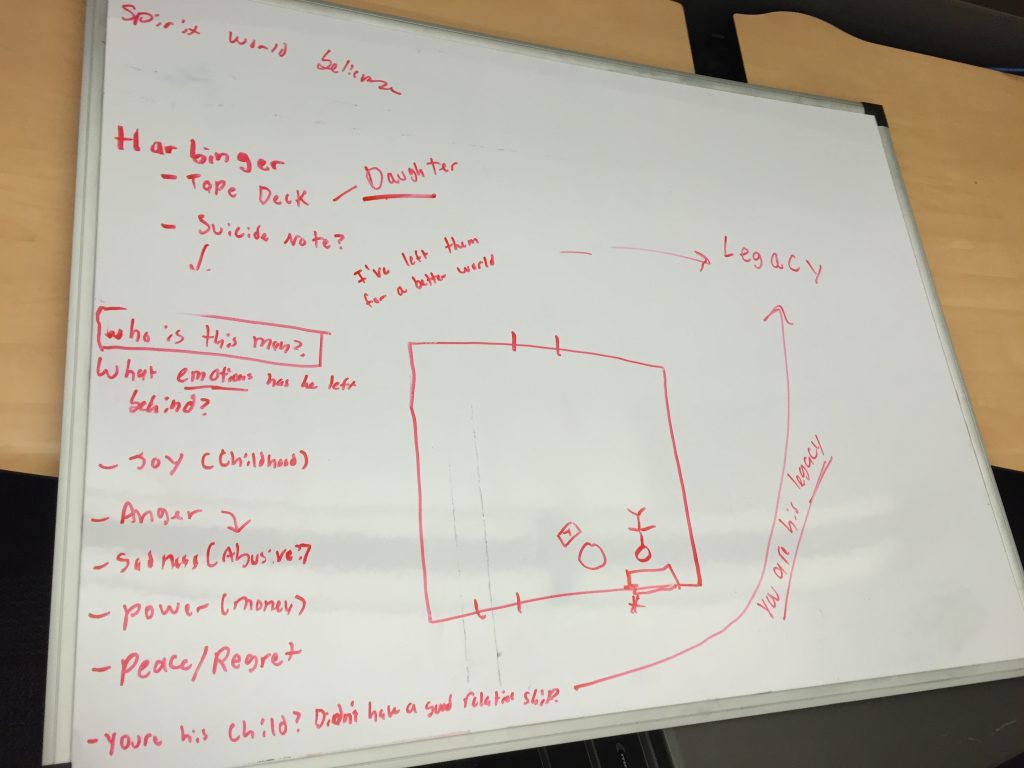 Spirit world believer
Harbinger
- Tape Deck — Daughter
- Suicide Note?
I've left them
for a better world
Legacy
Who is this man?
What emotions has he left
behind?
- Joy (Childhood)
- Anger
- Sadness (Abusive?)
- Power (money)
- Peace/Regret
- Youre his Child? Didn't have a good relationship.
You are his legacy